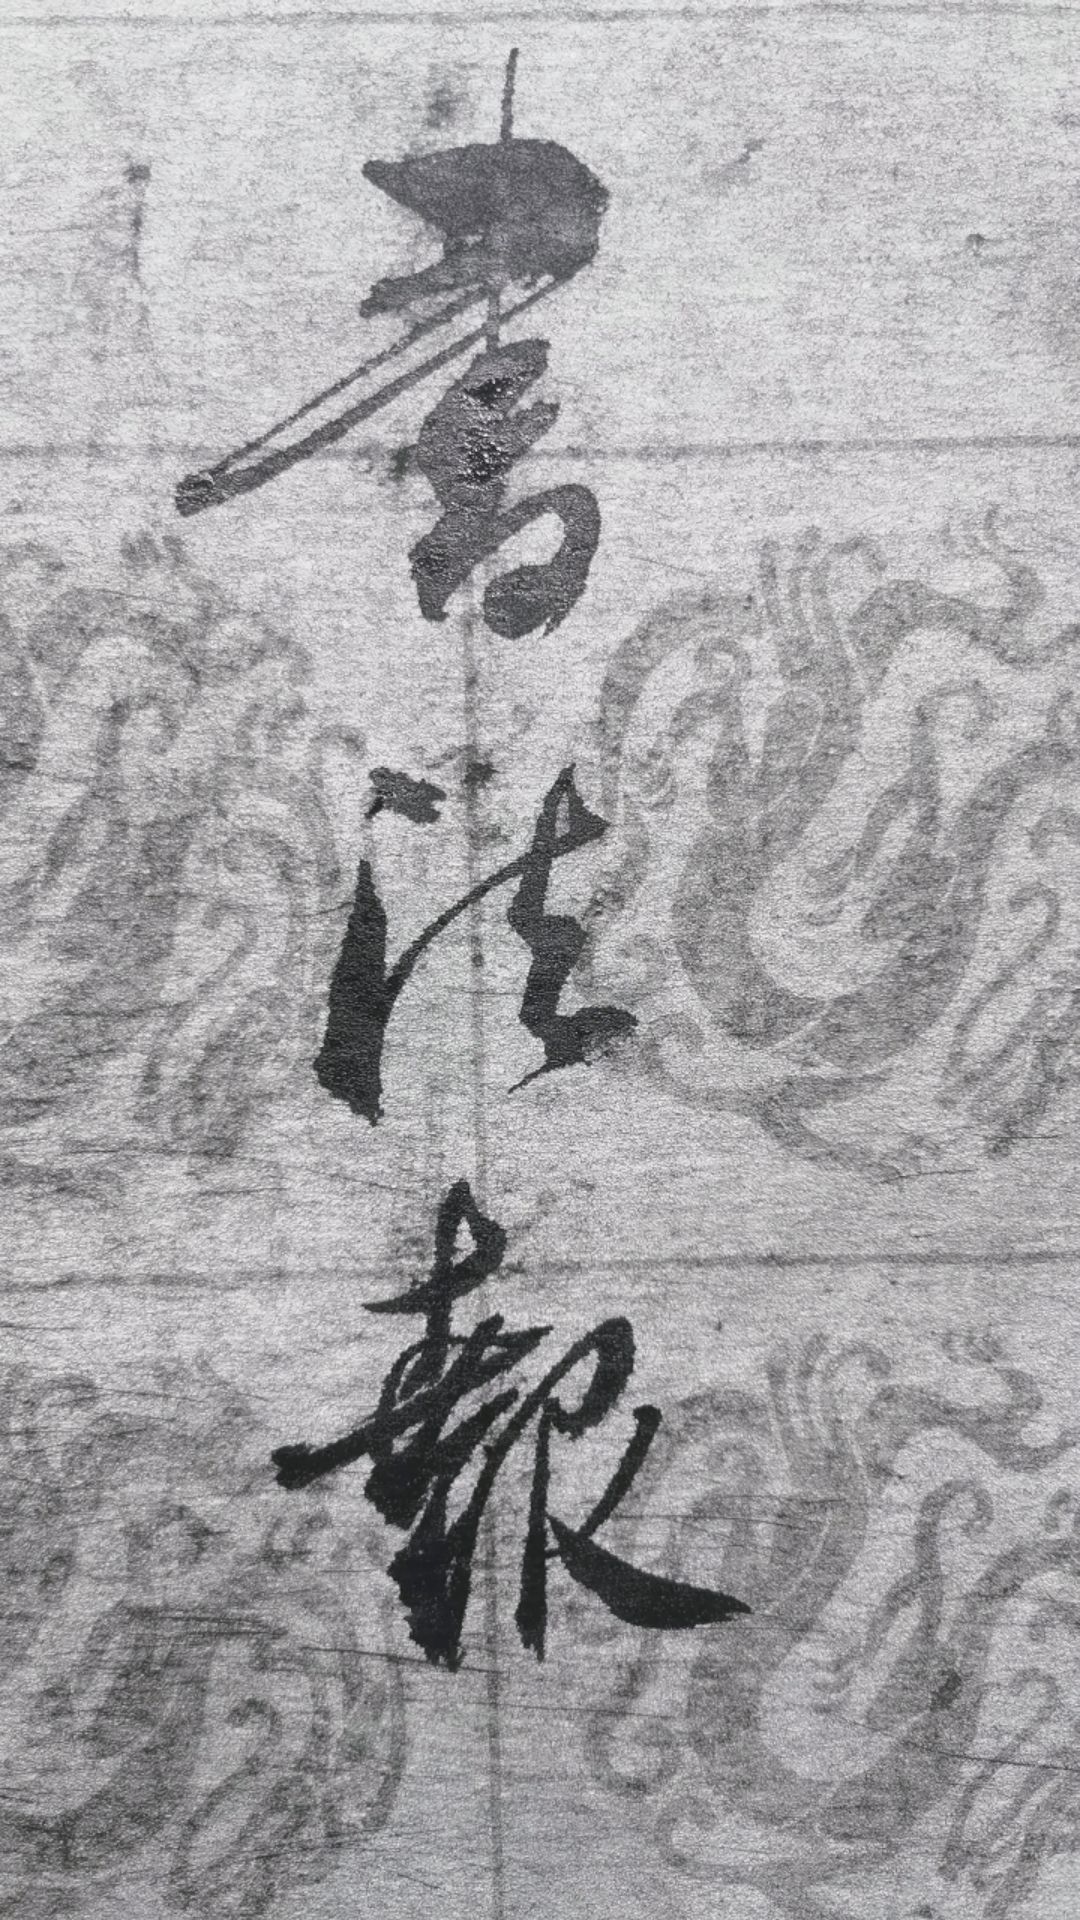 書法報